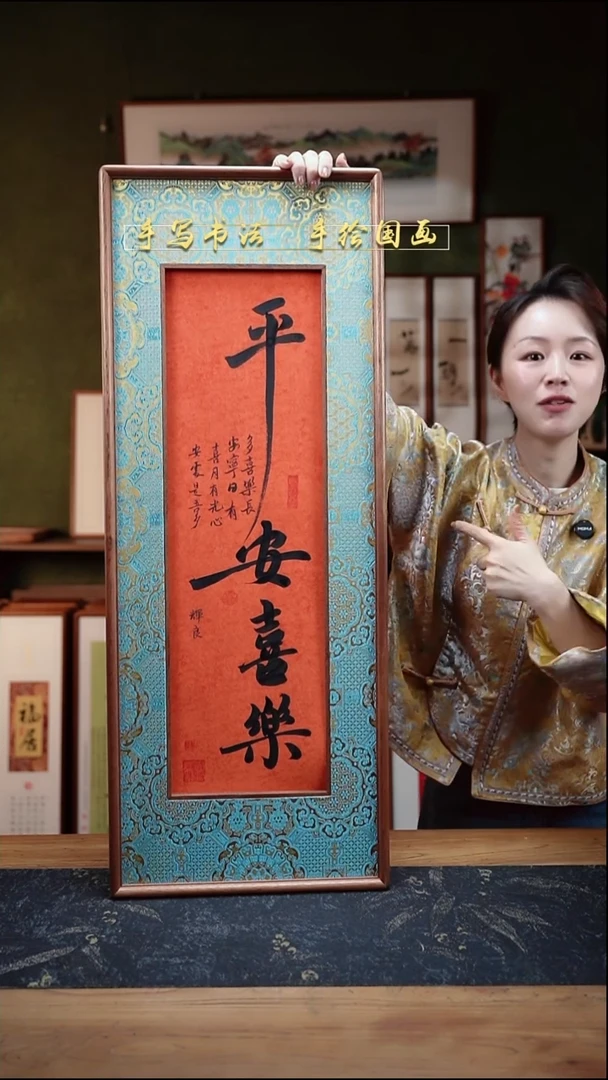 手写书法 手绘国画
平安喜樂
多喜樂長
安寧日有
喜月有光心
安處是吾乡
輝良
福居